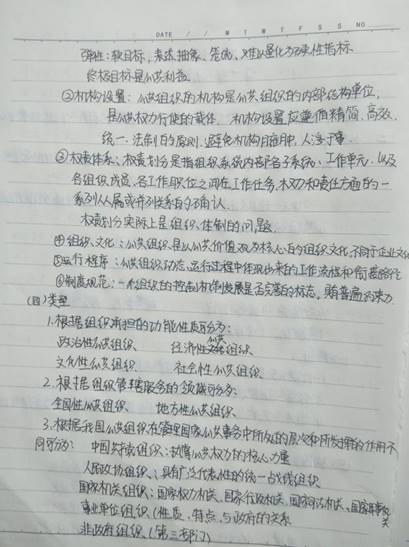 DATE / / M T W T F S S NO
弹性:软目标,表述抽象、笼统,难以量化为硬性指标
终极目标是公共利益
②机构设置:公共组织的机构是公共组织的内部结构单位,
是公共权力行使的载体。机构设置应遵循精简、高效、
统一、法制的原则,避免机构臃肿,人浮于事
③权责体系:权责划分是指组织系统内部各子系统、工作单元,以及
各组织成员、各工作职位之间在工作任务、权力和责任方面的一
系列从属或并列关系的确认
权责划分实际上是组织体制的问题
④组织文化:公共组织是以公共价值观为核心的组织文化,不同于企业文化
⑤运行程序:公共组织动态运行过程中体现出来的工作流程和衔接路径
⑥制度规范:一个组织的控制机制发展是否完善的标志,具普遍约束力
(四)类型
1.根据组织承担的功能性质可分为:
政治性公共组织 经济性公共组织
文化性公共组织 社会性公共组织
2.根据组织管辖服务的领域可分为:
全国性公共组织 地方性公共组织
3.根据我国公共组织在管理国家公共事务中所处的层次和所发挥的作用不
同可分为: 中国共产党组织:执掌公共权力的核心力量
人民政协组织:具有广泛代表性的统一战线组织
国家机关组织:国家权力机关、国家行政机关、国家司法机关、国家军事机关
事业单位组织(性质、特点、与政府的关系
非政府组织(第三部门)